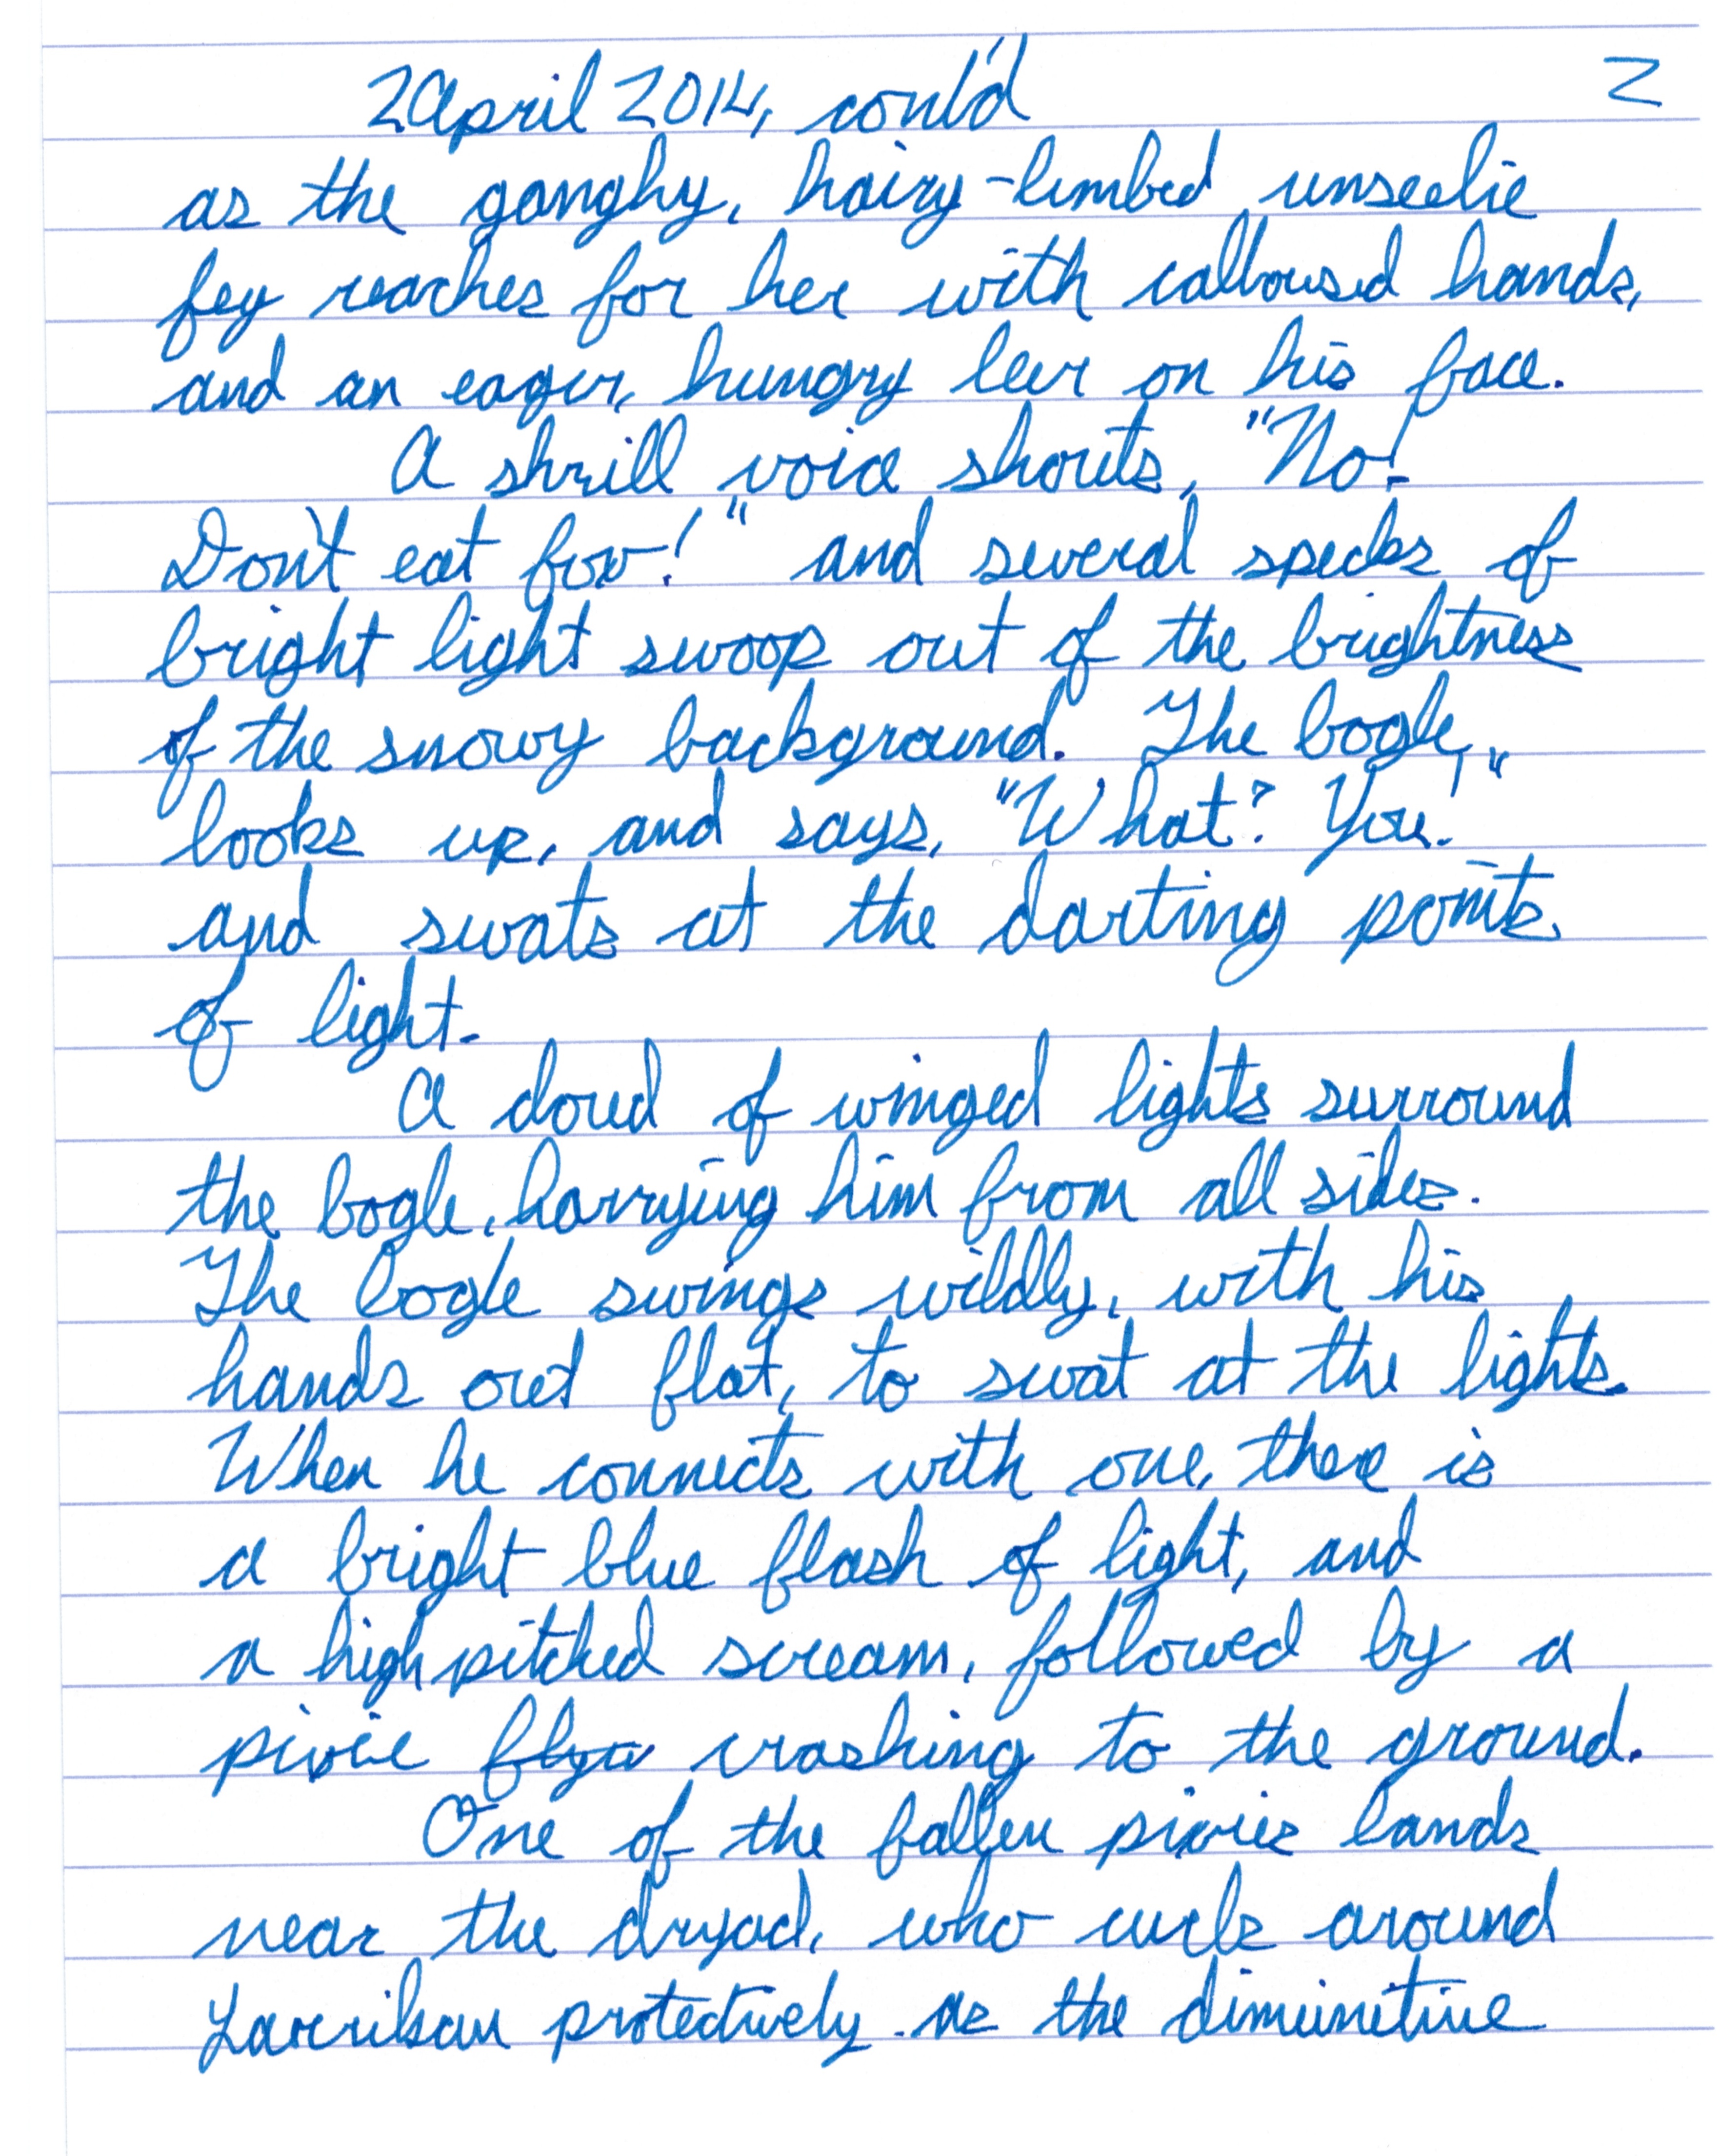 2 April 2014, cont'd 2
as the ganghy, hairy-limbed unseelie
fey reaches for her with calloused hands,
and an eager, hungry leer on his face.
A shrill voice shouts, "No!
Don't eat fox!" and several specks of
bright light swoop out of the brightness
of the snowy background. The bogle,
looks up, and says, "What? You!"
and swats at the darting points
of light.
A cloud of winged lights surround
the bogle, harrying him from all sides.
The bogle swings wildly, with his
hands out flat, to swat at the lights.
When he connects with one, there is
a bright blue flash of light, and
a high pitched scream, followed by a
pixie crashing to the ground.
One of the fallen pixies lands
near the dryad, who curls around
protectively as the diminutive